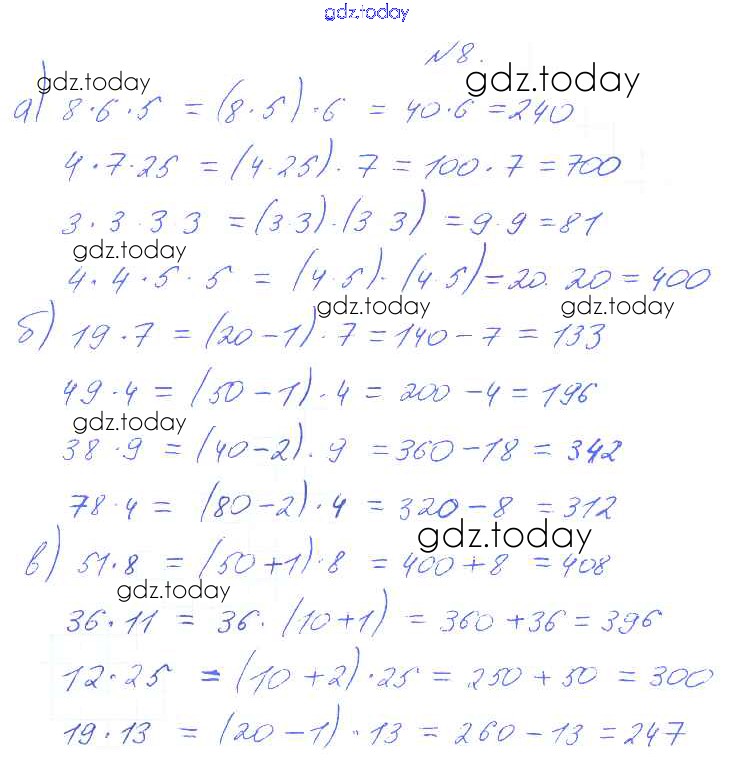 gdz.today
№8.
gdz.today gdz.today
а) 8·6·5 = (8·5)·6 = 40·6 = 240
4·7·25 = (4·25)·7 = 100·7 = 700
3·3·3 3 = (3·3)·(3 3) = 9·9 = 81
gdz.today
4·4·5·5 = (4·5)·(4·5) = 20·20 = 400
gdz.today gdz.today
б) 19·7 = (20-1)·7 = 140-7 = 133
49·4 = (50-1)·4 = 200-4 = 196
gdz.today
38·9 = (40-2)·9 = 360-18 = 342
78·4 = (80-2)·4 = 320-8 = 312
gdz.today
в) 51·8 = (50+1)·8 = 400+8 = 408
gdz.today
36·11 = 36·(10+1) = 360+36 = 396
12·25 = (10+2)·25 = 250+50 = 300
19·13 = (20-1)·13 = 260-13 = 247